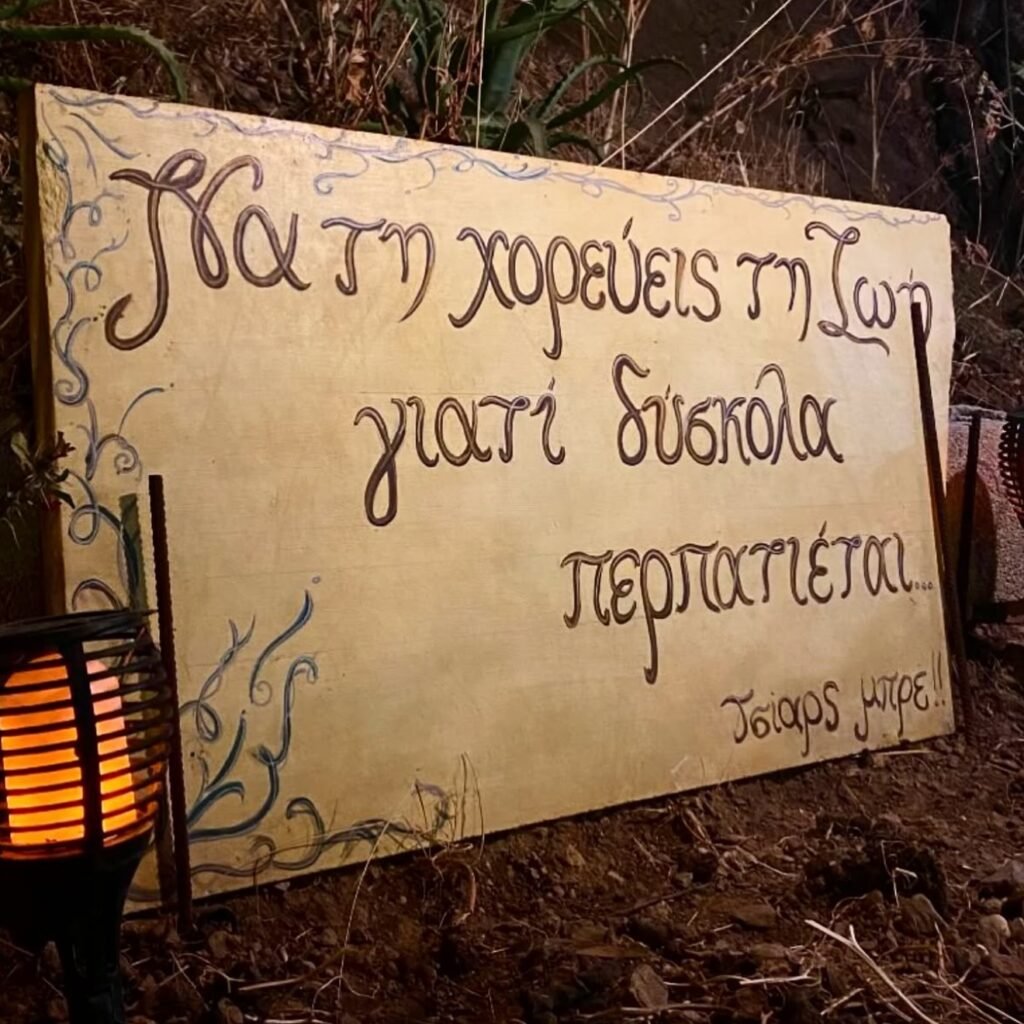 Να τη χορεύεις τη ζωή
γιατί δύσκολα
περπατιέται...
Τσίαρς μπρε!!